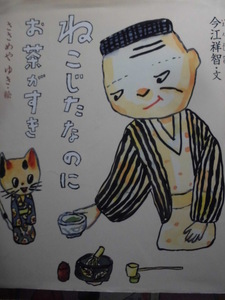 今江祥智・文
ねこじたなのに
お茶がすき
ささめや ゆき・絵